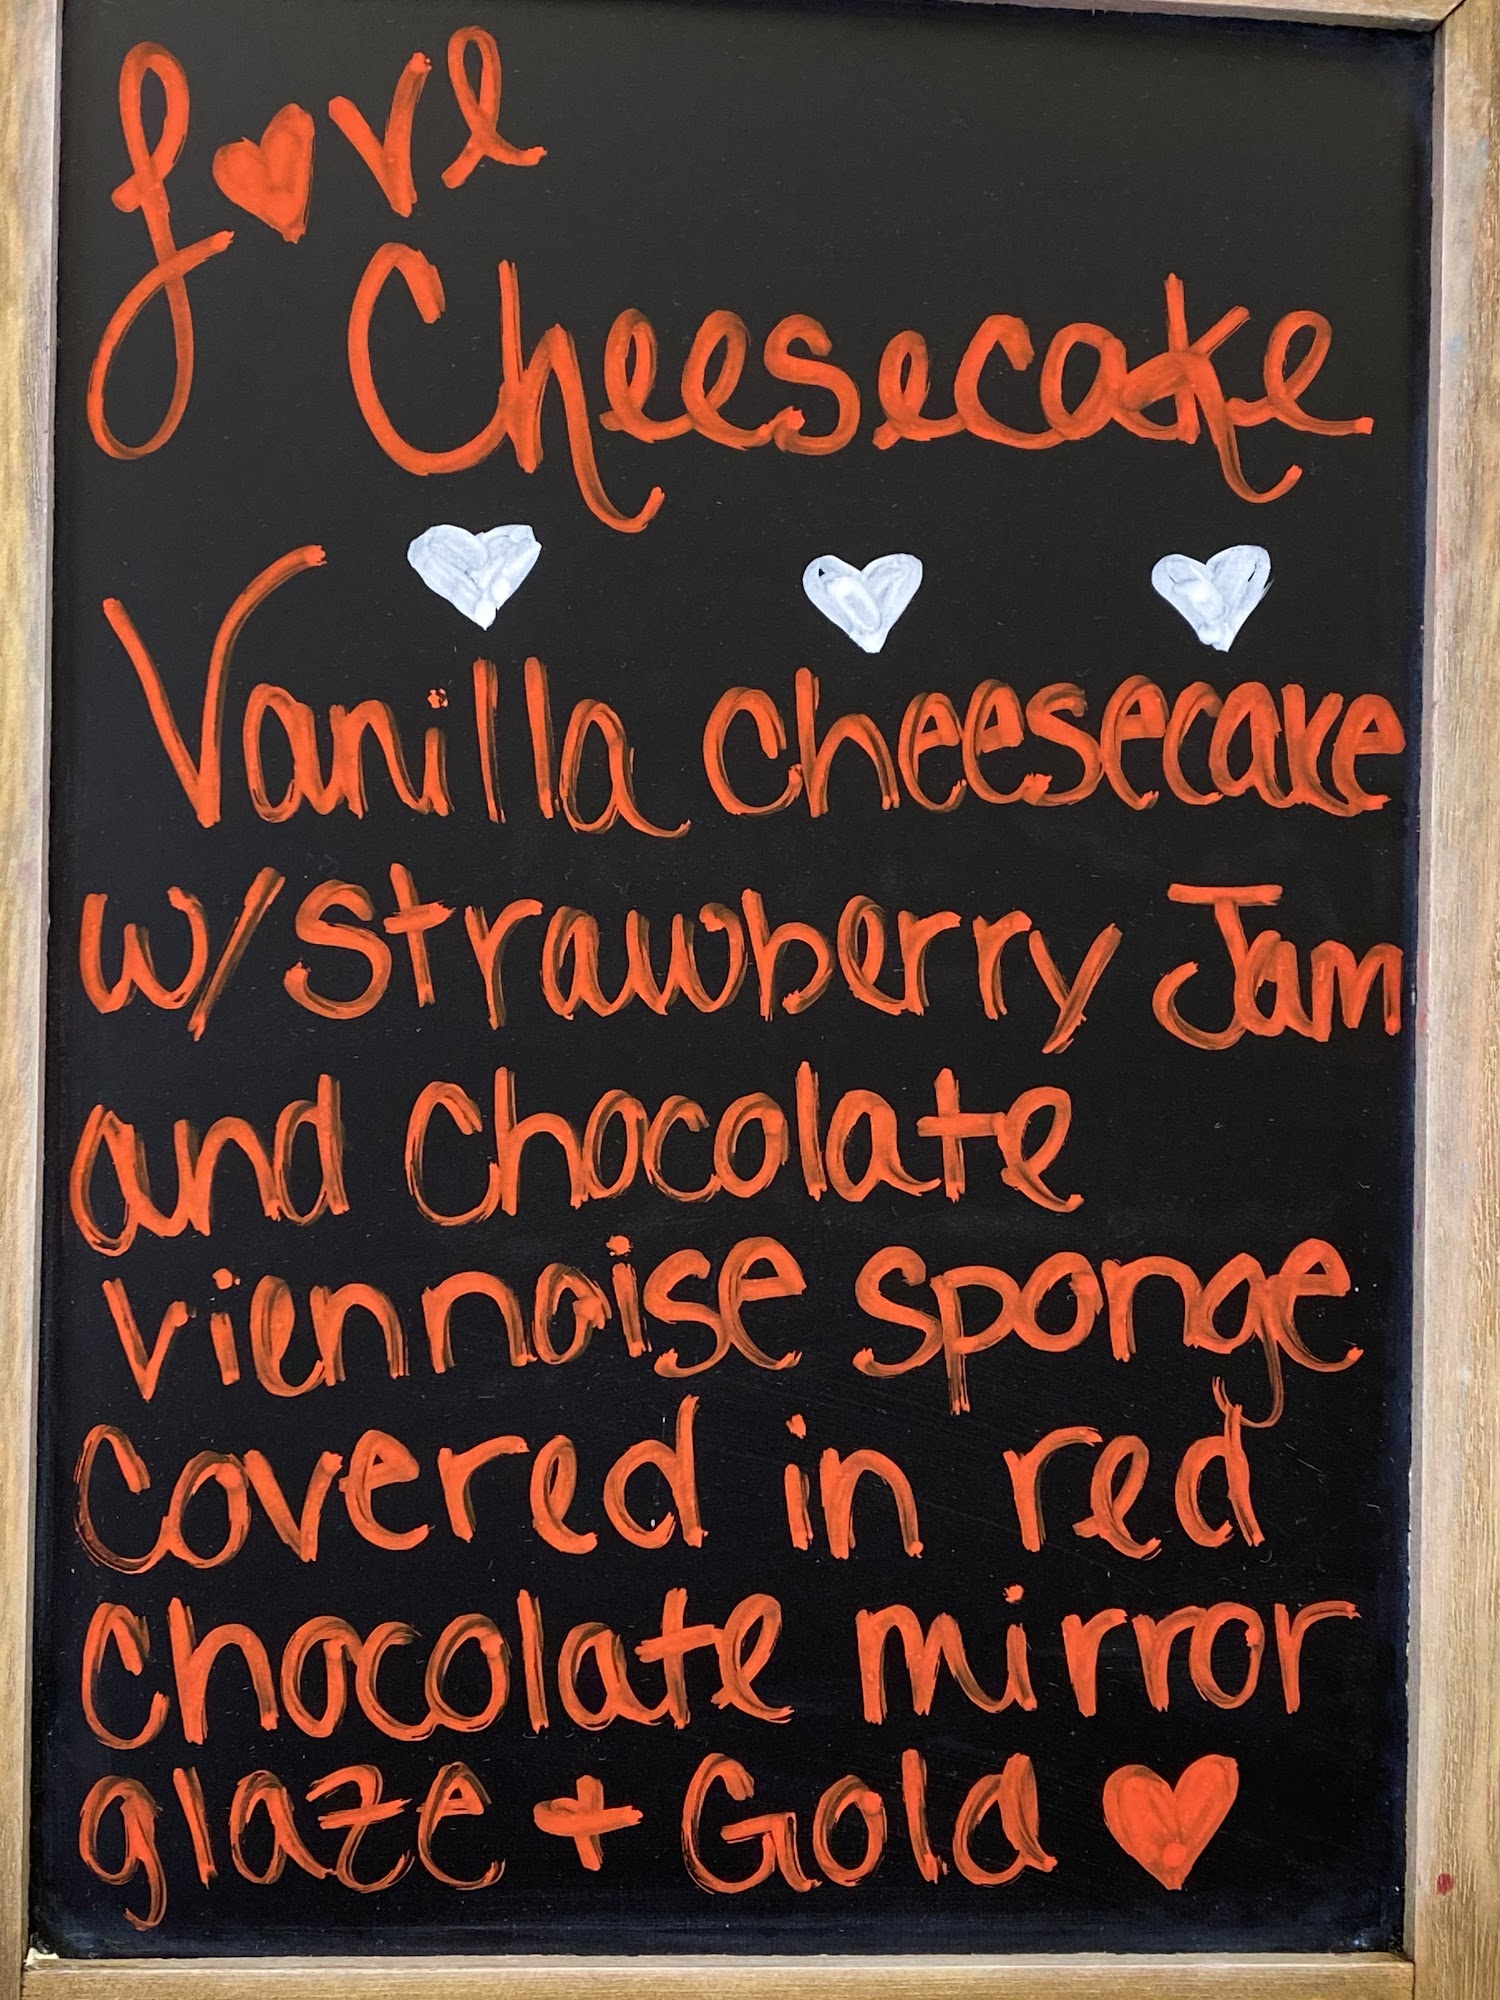 Love
Cheesecake
Vanilla cheesecake
w/strawberry Jam
and Chocolate
viennaise sponge
Covered in red
Chocolate mirror
glaze + Gold